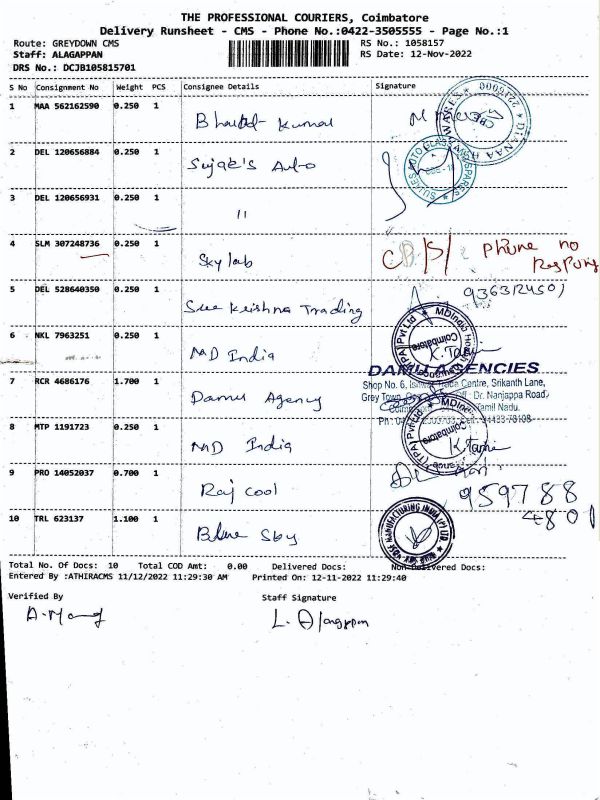 THE PROFESSIONAL COURIERS, Coimbatore
Delivery Runsheet - CMS - Phone No.:0422-3505555 - Page No.:1
Route: GREYDOWN CMS RS No.: 1058157
Staff: ALAGAPPAN RS Date: 12-Nov-2022
DRS No.: DCJB105815701
S No Consignment No Weight PCS Consignee Details Signature
1 MAA 562162590 0.250 1 Kumar
2 DEL 120656884 0.250 1 Sujak's Auto
3 DEL 120656931 0.250 1 11
4 SLM 307248736 0.250 1 Sky lab Phone no
5 DEL 528640350 0.250 1 Sree Krishna Trading
6 NKL 7963251 0.250 1 MD India
Coimbatore
DAMU AGENCIES
7 RCR 4686176 1.700 1 Damu Agency
Shop No. 6, Trade Centre, Srikanth Lane,
Grey Town, Dr. Nanjappa Road,
Tamil Nadu.
8 MTP 1191723 0.250 1 MD India
Coimbatore
9 PRO 14052037 0.700 1 Raj cool 959788
4801
10 TRL 623137 1.100 1 Blue Sky
MANUFACTURING INDIA (P) LTD
Total No. Of Docs: 10 Total COD Amt: 0.00 Delivered Docs: Non-Delivered Docs:
Entered By :ATHIRACMS 11/12/2022 11:29:30 AM Printed On: 12-11-2022 11:29:40
Verified By Staff Signature
L. Alagappan